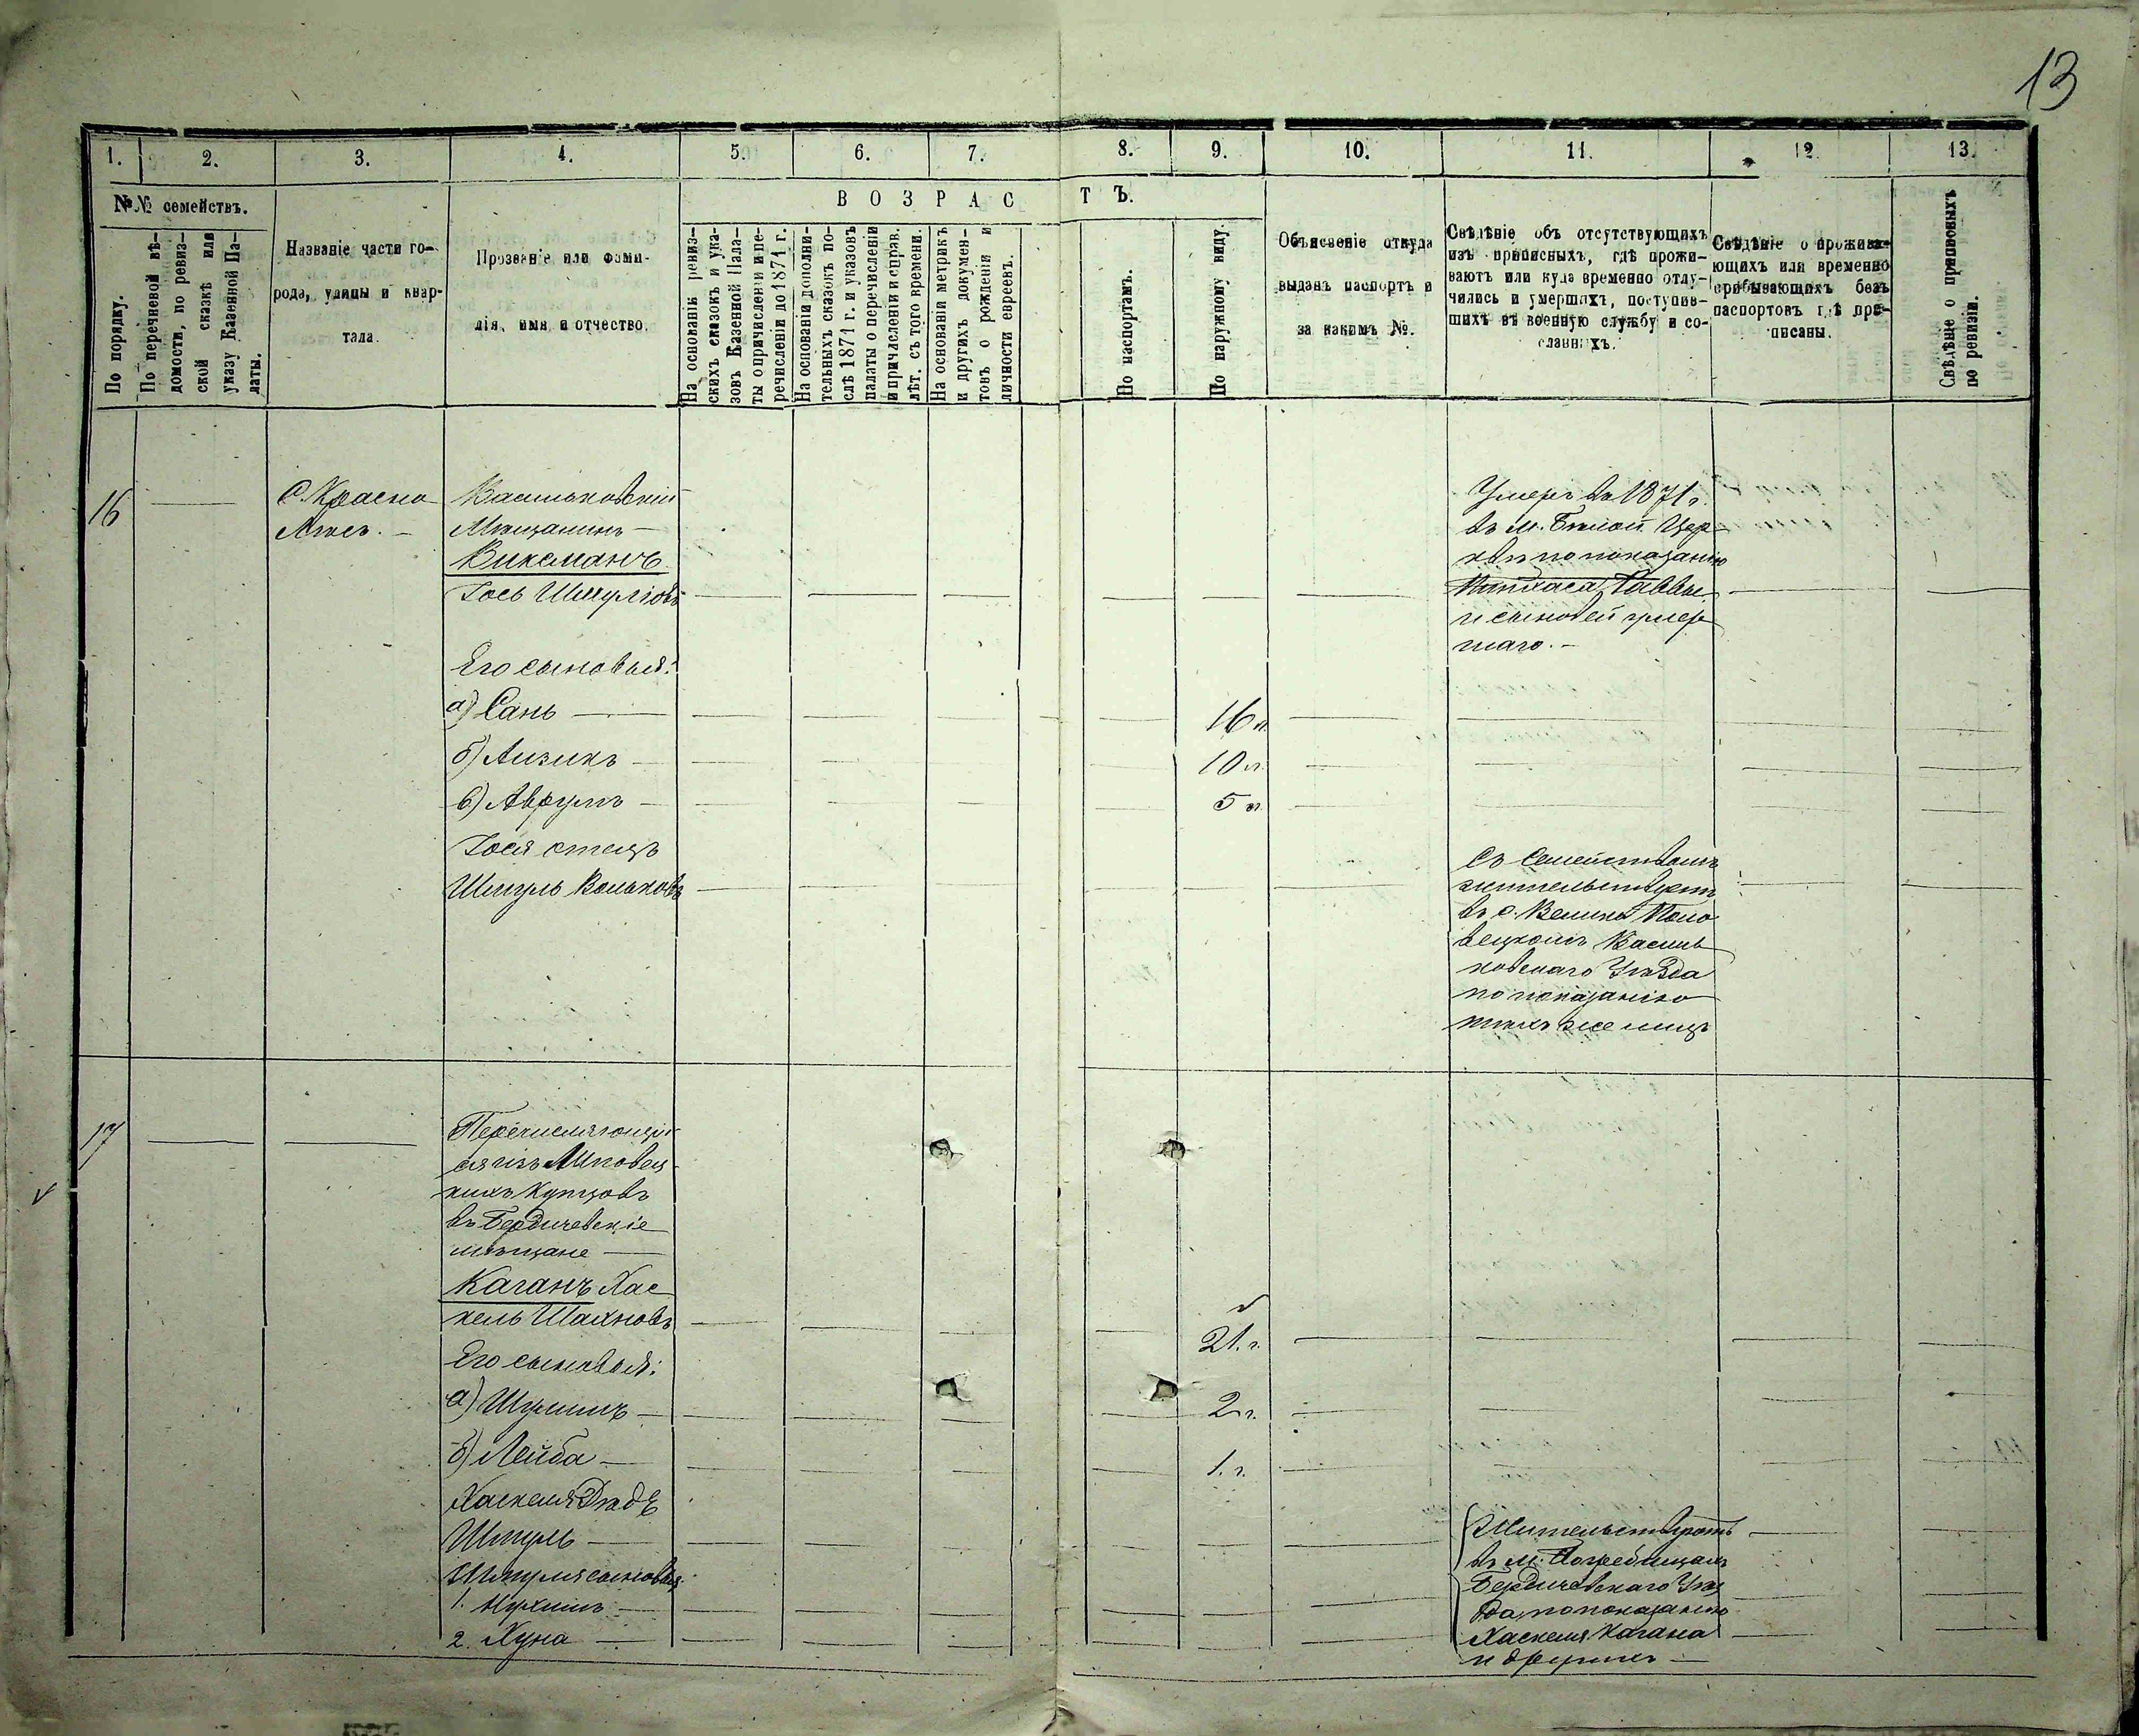 13
1. 2. 3. 4. 5. 6. 7. 8. 9. 10. 11. 12. 13.
№№ семействъ.
По порядку.
По перечневой вѣ-
домости, по ревиз-
ской сказкѣ или
указу Казенной Па-
латы.
Названіе части го-
рода, улицы и квар-
тала.
Прозваніе или фами-
лія, имя и отчество.
ВОЗРАСТЪ.
На основаніи ревиз-
скихъ сказокъ и ука-
зовъ Казенной Пала-
ты о причисленіи и пе-
речисленіи до 1871 г.
На основаніи дополни-
тельныхъ сказокъ по-
слѣ 1871 г. и указовъ
палаты о перечисленіи
и причисленіи и справ.
лѣт. съ того времени.
На основаніи метрикъ
и другихъ докумен-
товъ о рожденіи и
личности евреевъ.
По паспортамъ.
По наружному виду.
Объясненіе откуда
выданъ паспортъ и
за какимъ №.
Свѣдѣніе объ отсутствующихъ
изъ приписныхъ, гдѣ прожи-
ваютъ или куда временно отлу-
чились и умершихъ, поступив-
шихъ въ военную службу и со-
сланныхъ.
Свѣдѣніе о прожива-
ющихъ или временно
прибывающихъ безъ
паспортовъ гдѣ при-
писаны.
Свѣдѣніе о приписныхъ
по ревизіи.
16
С. Красно
Лѣсъ. -
Васильковскій
Мѣщанинъ -
Виксманъ
Іось Шмулювъ
Его сыновья:
а) Сань 16 л.
б) Аизикъ 10 л.
в) Аврумъ 5 л.
Іося отецъ
Шмуль Вольковъ
Умеръ въ 1871 г.
въ М. Бѣлой Цер-
кви по показанію
Пинхаса
и сыновей умер
шаго. -
Съ Семействомъ
жительствуетъ
въ с. Велико Поло
вецкомъ Василь
ковскаго Уѣзда
по показанію
тѣхъ же лицъ
17
Перечисляющій
ся изъ Липовец
кихъ Купцовъ
въ Бердичевскіе
мѣщане
Каганъ Хас
кель Шахновъ 21. г.
Его сыновья:
а) Шулимъ 2 г.
б) Лейба 1. г.
Хаскеля Дядѣ
Шмуль
Шмуля сыновья
1. Нухимъ
2. Хуна
Жительствуютъ
въ М. Погребищахъ
Бердичевскаго Уѣз
да, по показанію
Хаскеля Кагана
и другихъ -